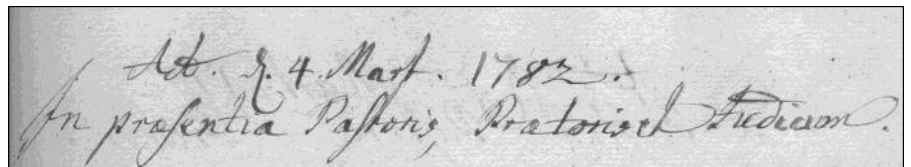 Act. d. 4. Mart. 1782.
In præsentia Pastoris, Prætoris et Judicum.